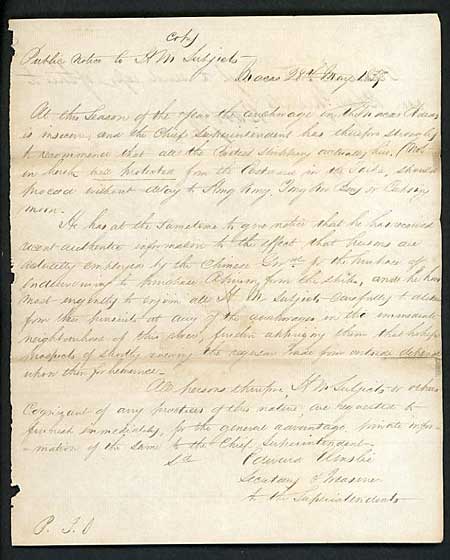 Copy
Public Notice to H M Subjects
Macao 28th May 1839
At this Season of the Year the anchorage in the Macao Roads
is insecure, and the Chief Superintendent has therefore strongly
to recommend that all the British Shipping
in from the in the should
proceed without delay to Hong Kong, Bay or
moon.
He has at the same time to give notice that he has received
recent authentic information to the effect that persons are
actually employed by the Chinese Govt for the purpose of
endeavouring to purchase Opium from the Ships, and he has
most urgently to enjoin all H M Subjects carefully to abstain
from these pursuits at any of the anchorages in the immediate
neighbourhood of this place, further apprizing them that
prospects of shortly the regular trade from outside depend
upon their forbearance.
All persons therefore, H M Subjects or others
Cognizant of any practices of this nature are requested to
furnish immediately, for the general advantage, private infor-
mation of the same to the Chief Superintendent
Sd Edward Elmslie
Secretary & Treasurer
to the Superintendents
P. T. O